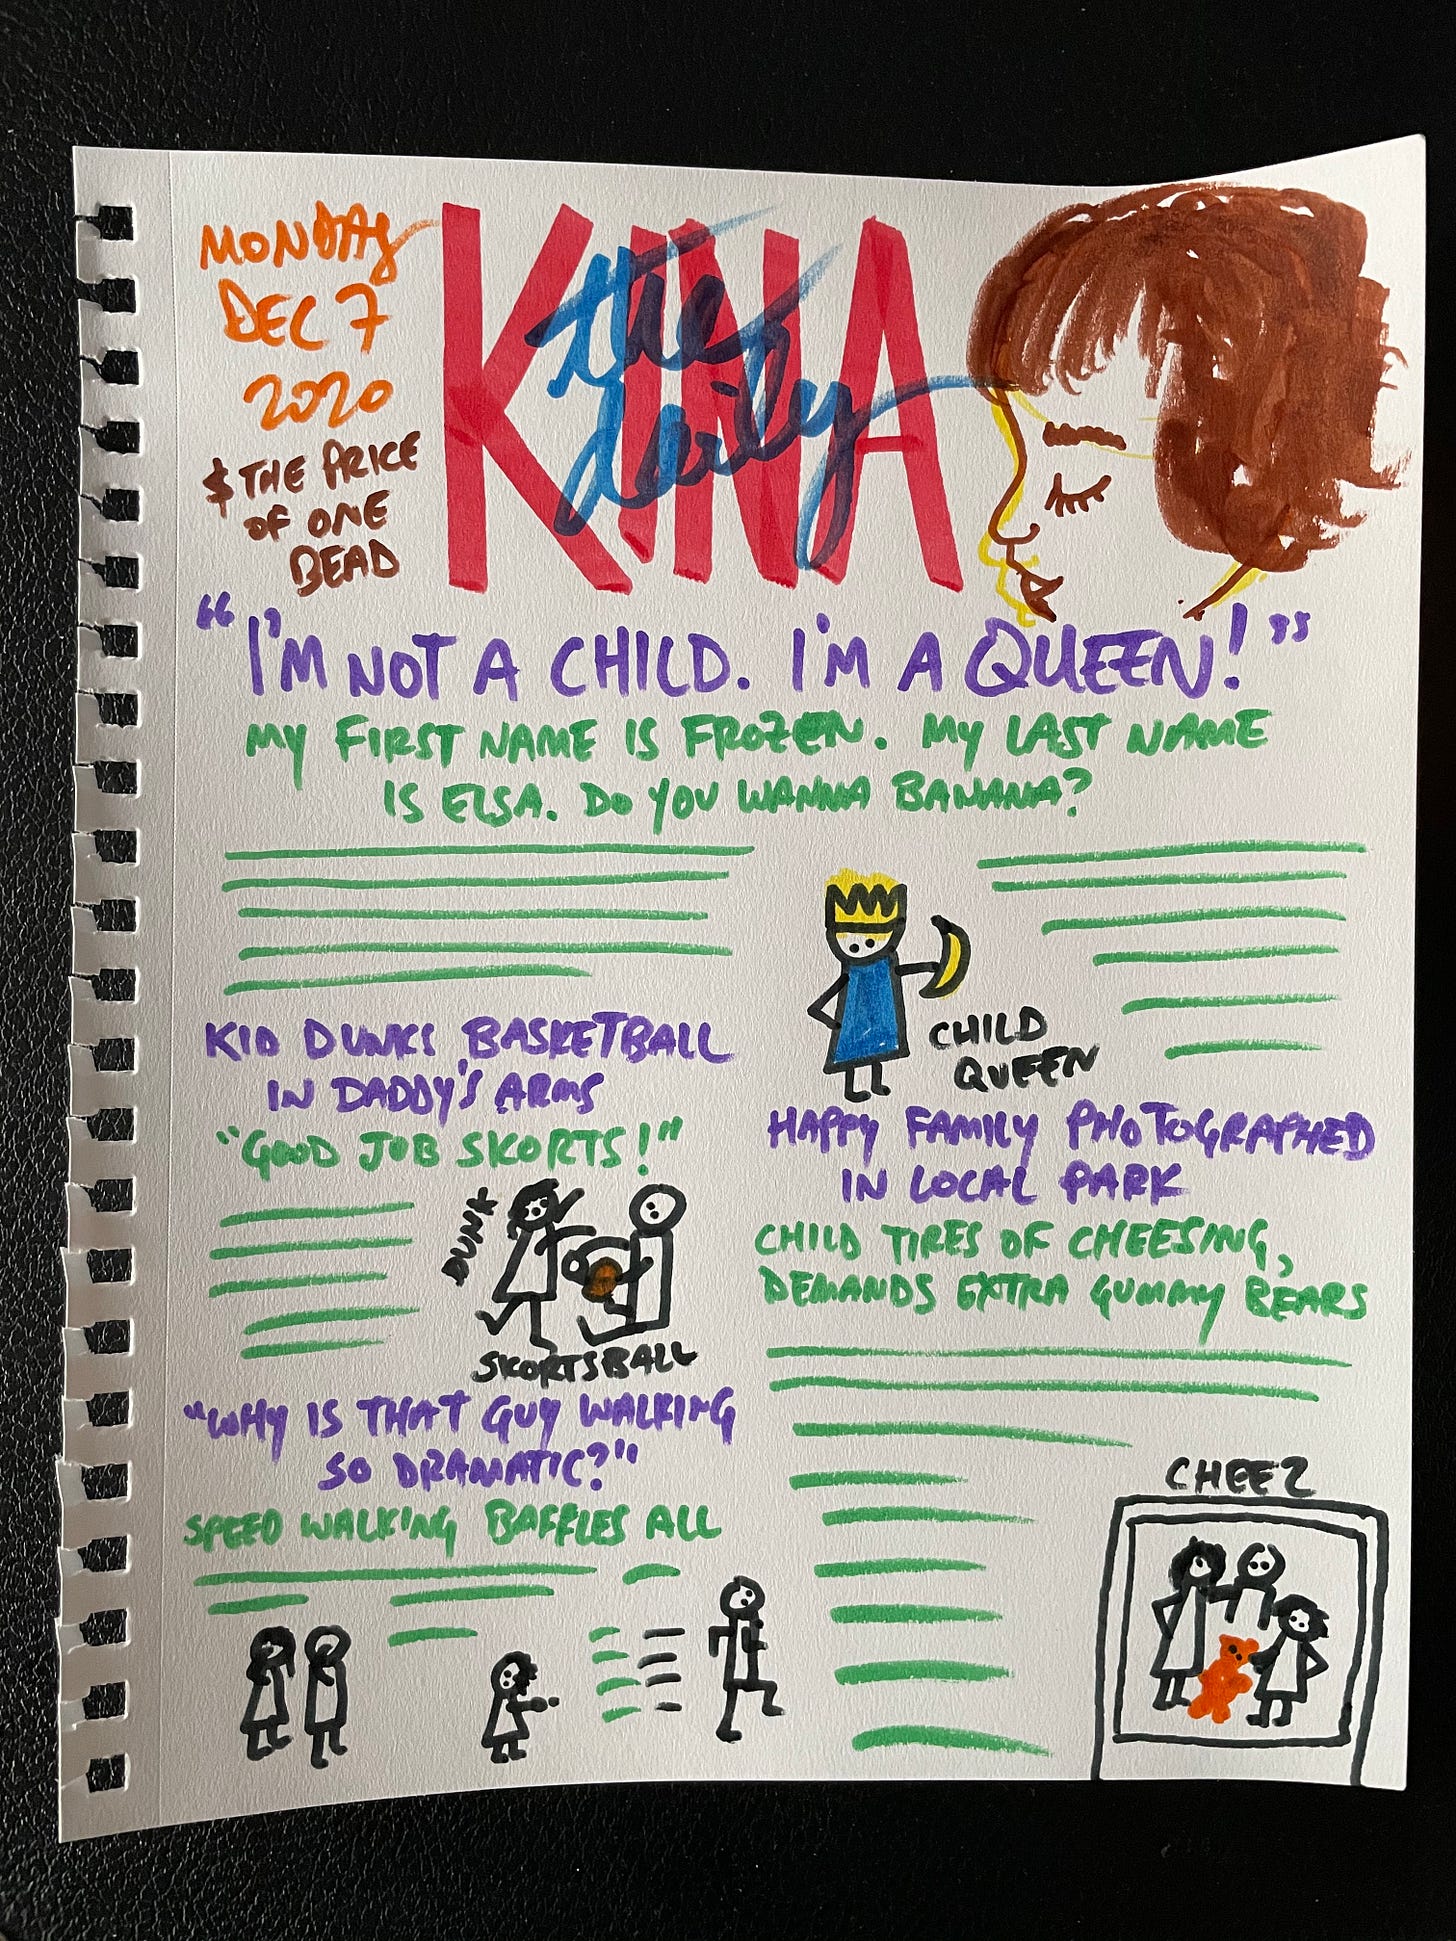 MONDAY
DEC 7
2020
$ THE PRICE
OF ONE
BEAD
the
daily
KINA
"I'M NOT A CHILD. I'M A QUEEN!"
MY FIRST NAME IS FROZEN. MY LAST NAME
IS ELSA. DO YOU WANNA BANANA?
CHILD
QUEEN
KID DUNKS BASKETBALL
IN DADDY'S ARMS
"GOOD JOB SKORTS!"
DUNK
SKORTSBALL
"WHY IS THAT GUY WALKING
SO DRAMATIC?"
SPEED WALKING BAFFLES ALL
HAPPY FAMILY PHOTOGRAPHED
IN LOCAL PARK
CHILD TIRES OF CHEESING,
DEMANDS EXTRA GUMMY BEARS
CHEEZ